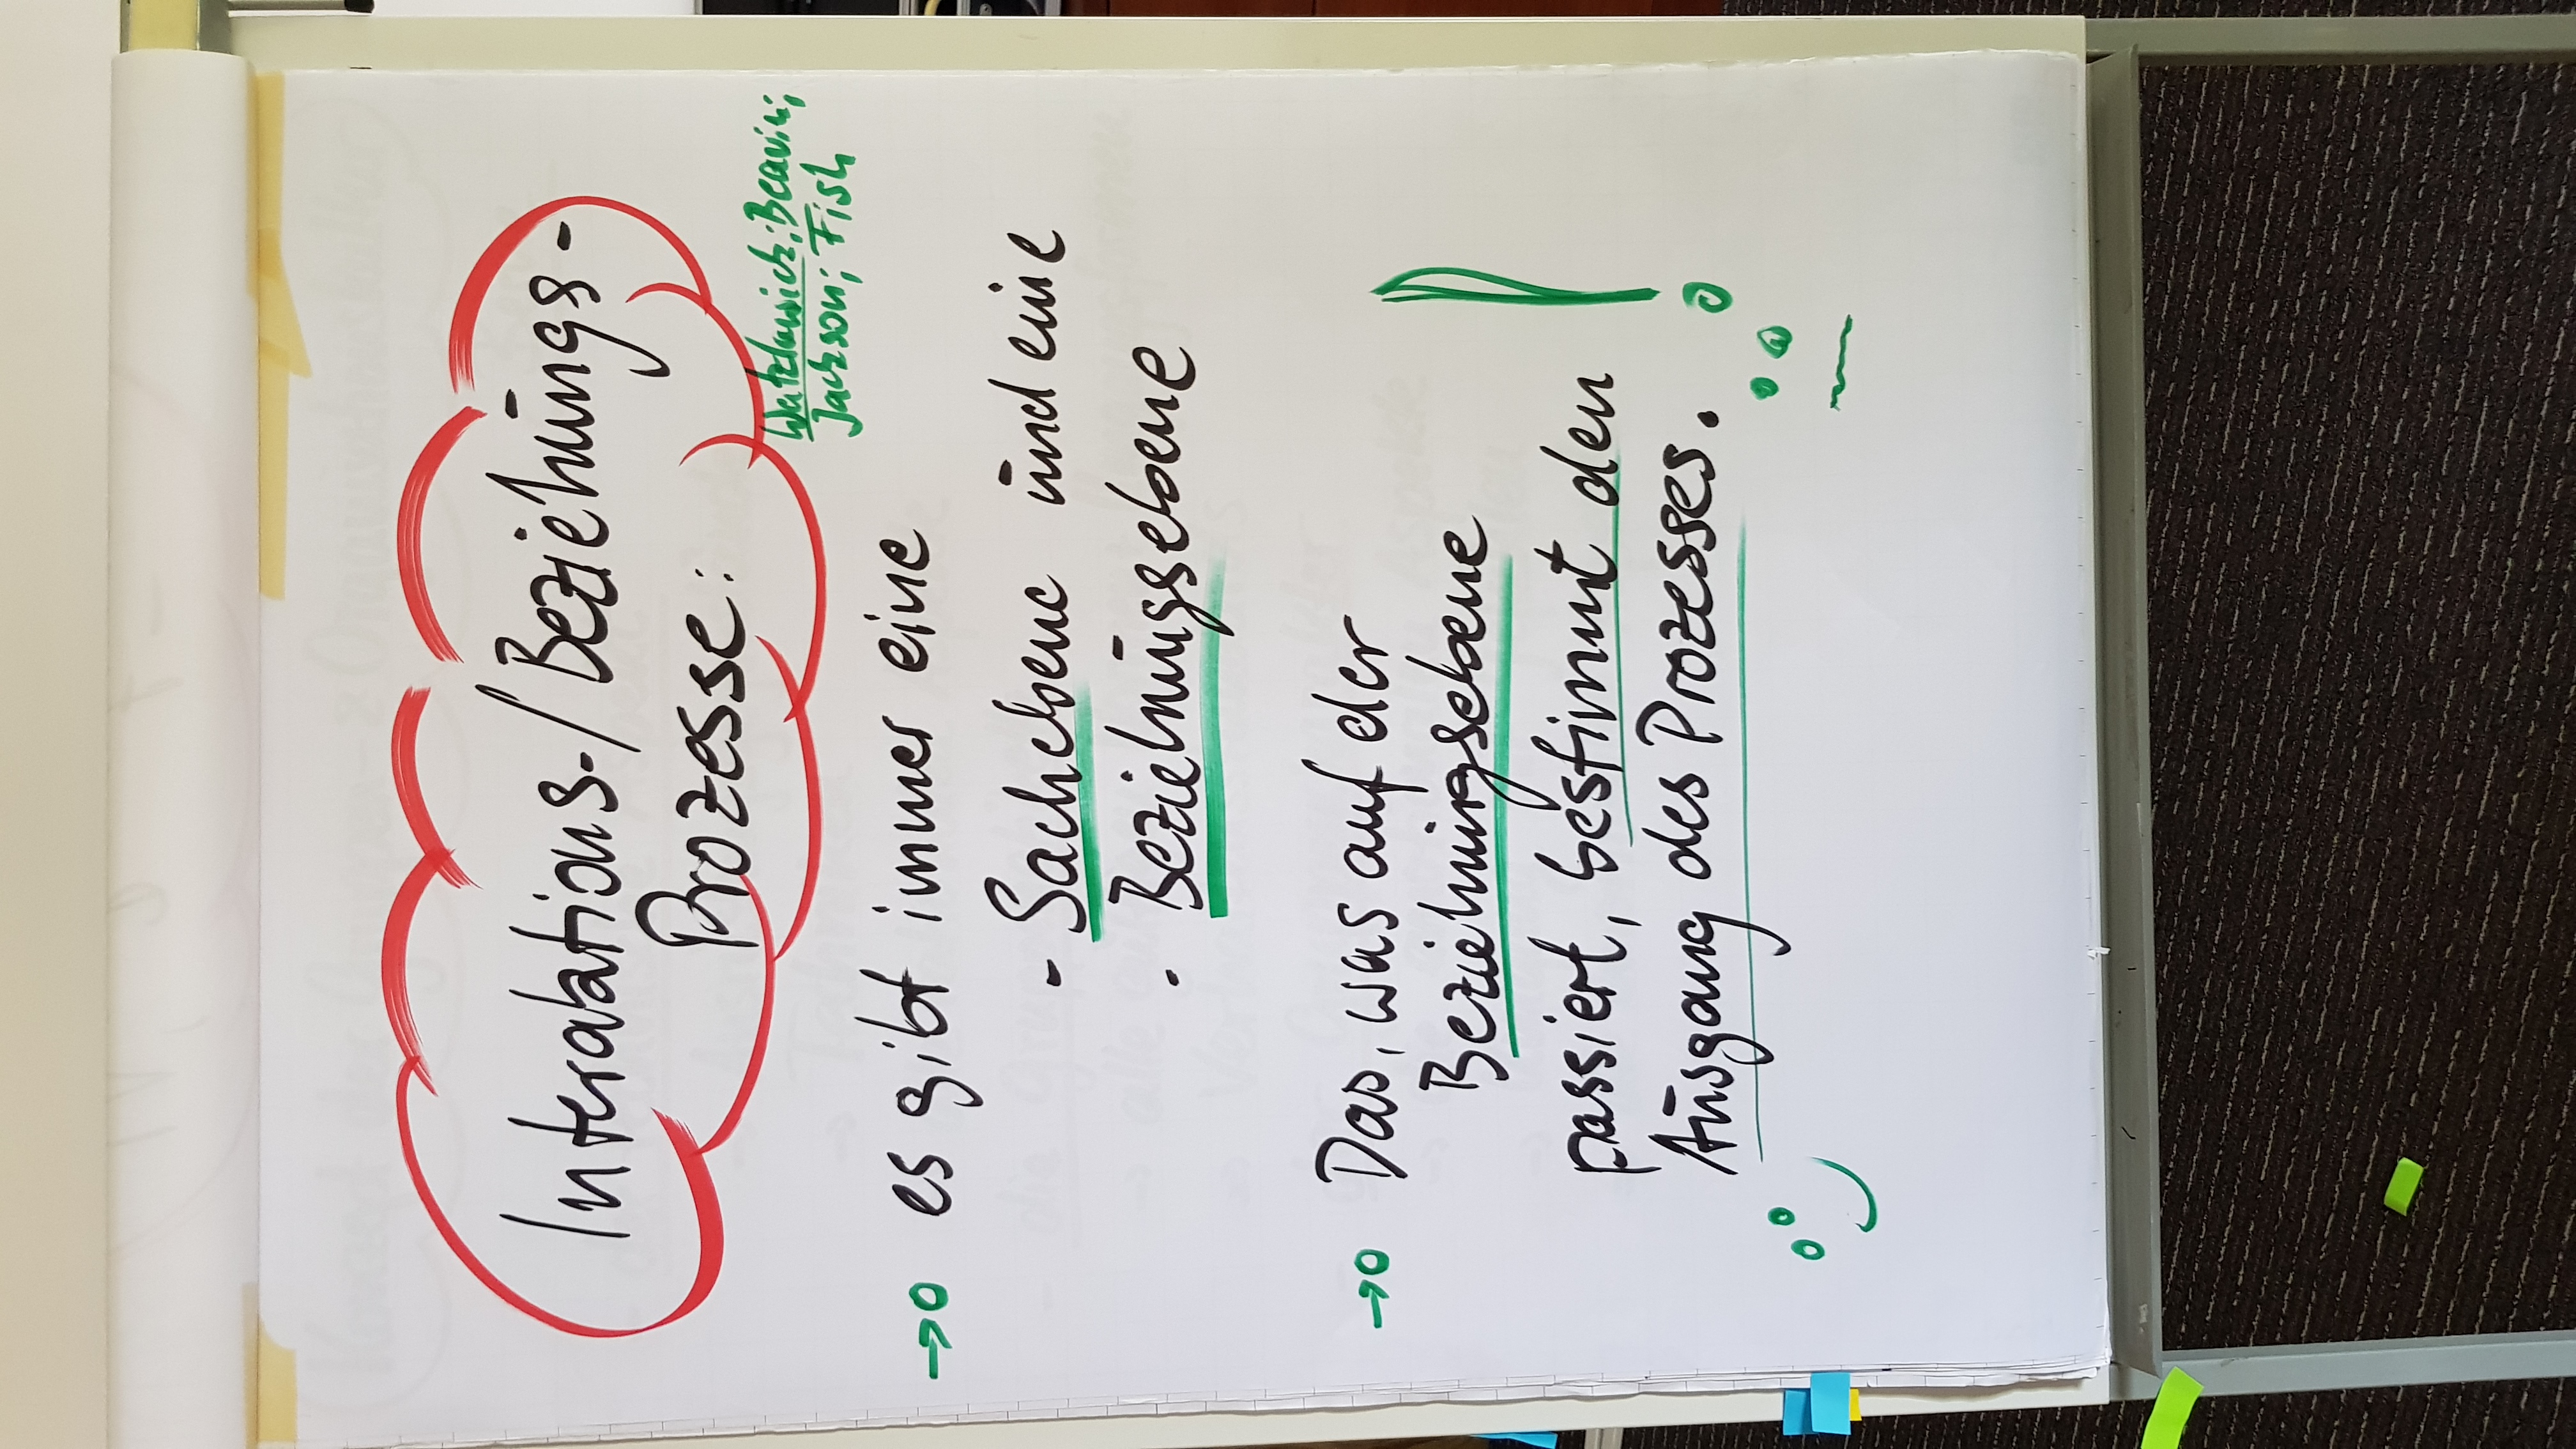 Interaktions-/Beziehungs-
Prozesse:
Watzlawick; Beavin;
Jackson; Fish
→o es gibt immer eine
- Sachebene und eine
- Beziehungsebene
→o Das, was auf der
Beziehungsebene
passiert, bestimmt den
Ausgang des Prozesses. !